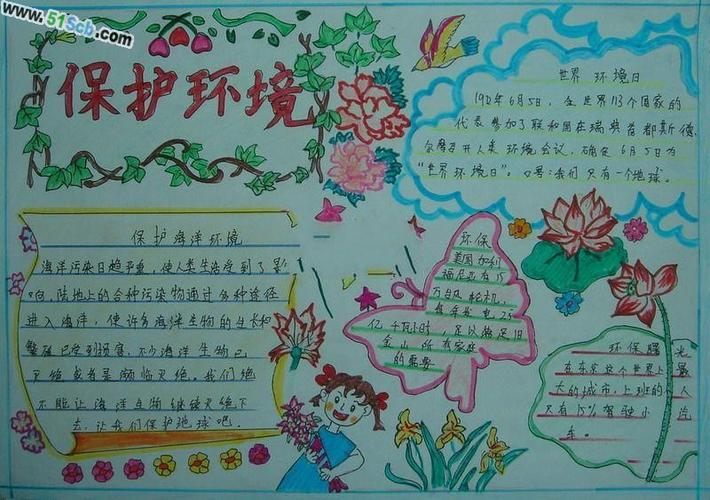 www.51Scb.com
保护环境
世界 环境日
1972年6月5日，在世界113个国家的
代表参加了联和国在瑞典首都斯德
尔摩召开人类环境会议，确定6月5日为
“世界环境日”。口号：我们只有一个地球。
保护海洋环境
海洋污染日趋严重，使人类生活受到了影
响，陆地上的各种污染物通过各种途径
进入海洋，使许多海洋生物的生长和
繁殖已受到损害，不少海洋生物已
灭绝或者濒临灭绝。我们绝
不能让海洋生物继续灭绝下
去，让我们保护地球吧。
环保
美国加利
福尼亚有15
万台风轮机，
每年发电25
亿千瓦小时，足以满足旧
金山所有家庭
的需要
环保曙光
在东京这个世界上最
大的城市，上班的人
只有15%驾驶小汽
车。